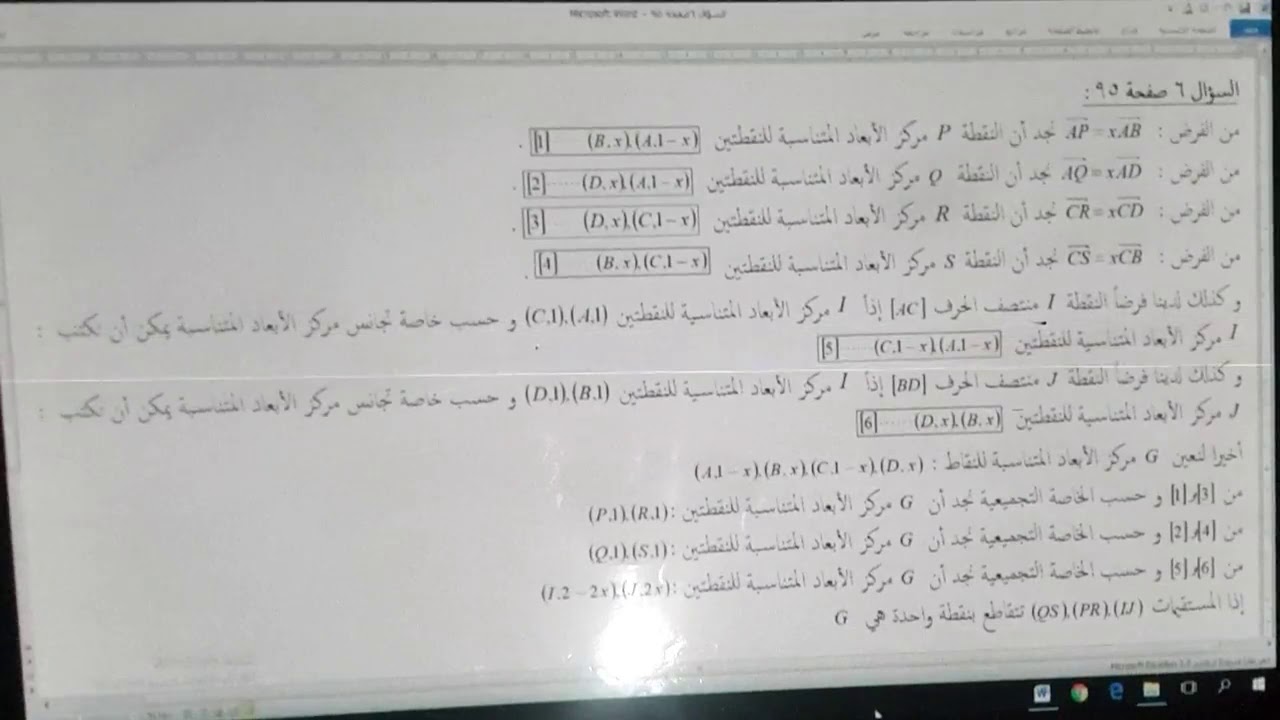 السؤال ٦ صفحة ٩٥ :
من الفرض : AP = xAB نجد أن النقطة P مركز الأبعاد المتناسبة للنقطتين (B, x),(A,1 − x) [1] .
من الفرض : AQ = xAD نجد أن النقطة Q مركز الأبعاد المتناسبة للنقطتين (D, x),(A,1 − x)······[2] .
من الفرض : CR = xCD نجد أن النقطة R مركز الأبعاد المتناسبة للنقطتين (D, x),(C,1 − x) [3] .
من الفرض : CS = xCB نجد أن النقطة S مركز الأبعاد المتناسبة للنقطتين (B, x),(C,1 − x) [4] .
و كذلك لدينا فرضاً النقطة I منتصف الحرف [AC] إذاً I مركز الأبعاد المتناسبة للنقطتين (C,1),(A,1) و حسب خاصة تجانس مركز الأبعاد المتناسبة يمكن أن نكتب :
I مركز الأبعاد المتناسبة للنقطتين (C,1 − x),(A,1 − x)······[5]
و كذلك لدينا فرضاً النقطة J منتصف الحرف [BD] إذاً I مركز الأبعاد المتناسبة للنقطتين (D,1),(B,1) و حسب خاصة تجانس مركز الأبعاد المتناسبة يمكن أن نكتب :
J مركز الأبعاد المتناسبة للنقطتين (D, x),(B, x)······[6]
أخيرا لنعين G مركز الأبعاد المتناسبة للنقاط : (A,1 − x),(B, x),(C,1 − x),(D, x)
من [3],[1] و حسب الخاصة التجميعية نجد أن G مركز الأبعاد المتناسبة للنقطتين :(P,1),(R,1)
من [4],[2] و حسب الخاصة التجميعية نجد أن G مركز الأبعاد المتناسبة للنقطتين :(Q,1),(S,1)
من [6],[5] و حسب الخاصة التجميعية نجد أن G مركز الأبعاد المتناسبة للنقطتين :(I,2 − 2x),(J,2x)
إذا المستقيمات (QS),(PR),(IJ) تتقاطع بنقطة واحدة هي G